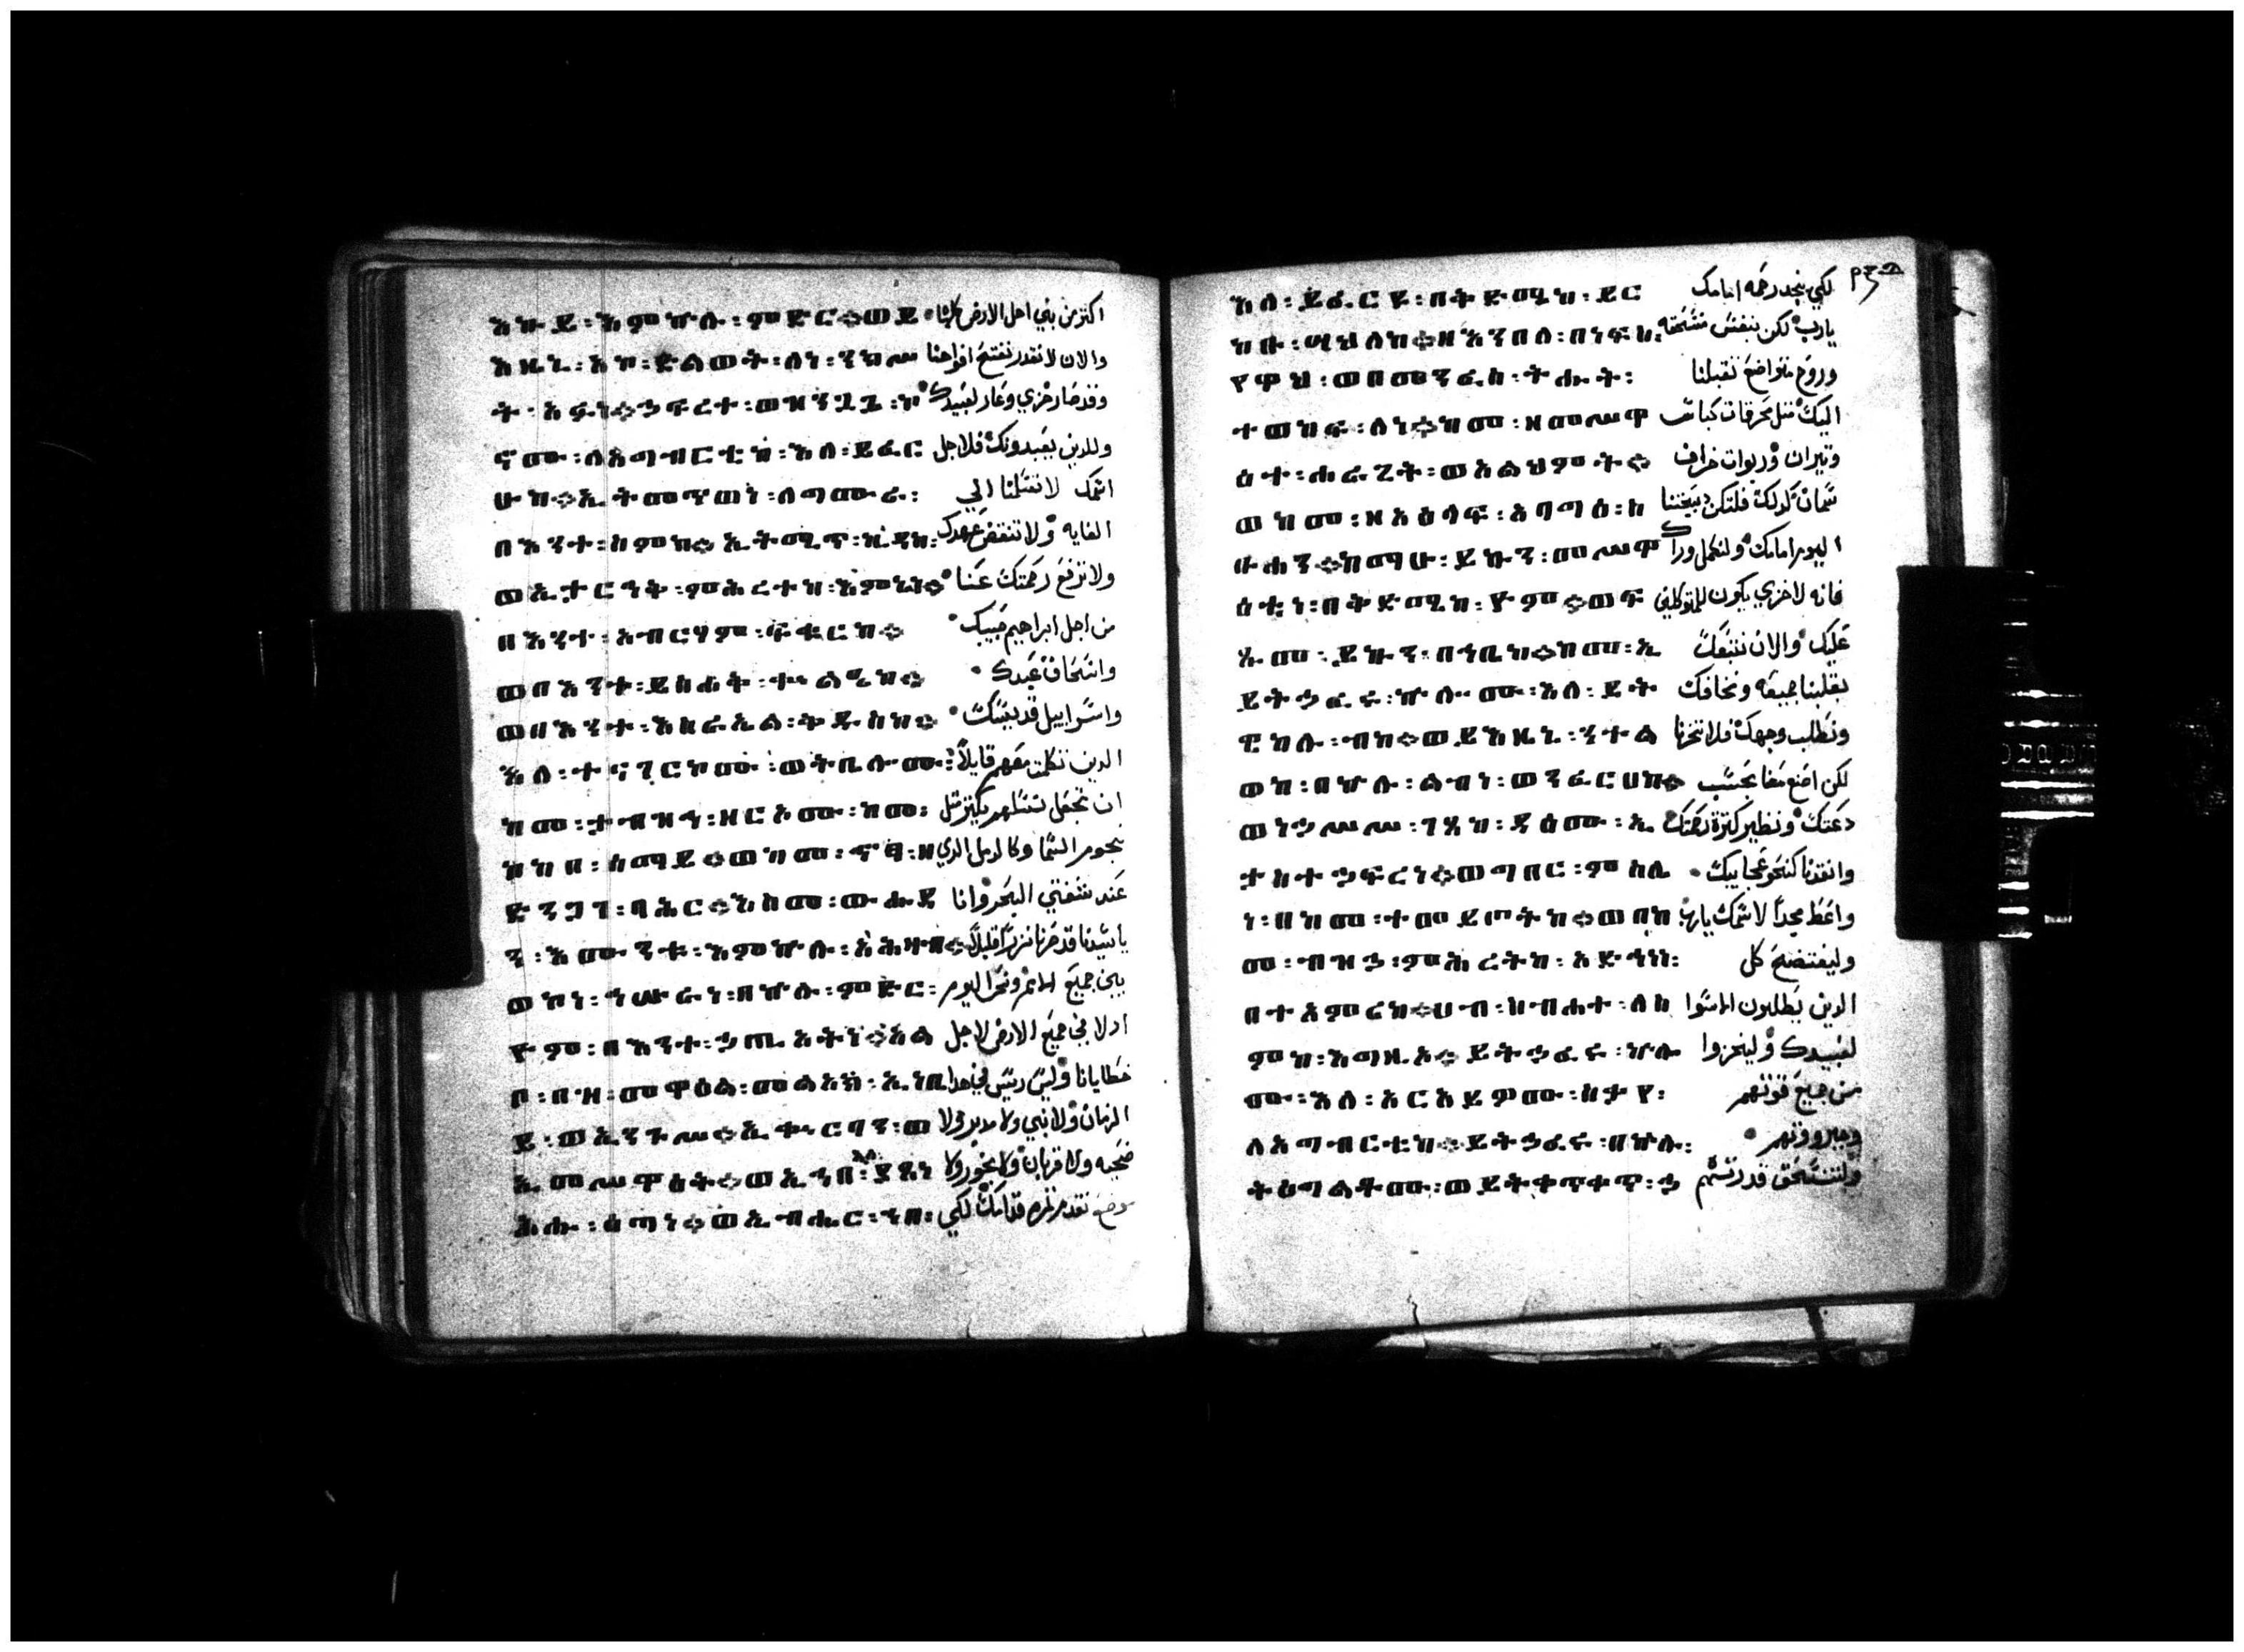 እኩይ፡እምኵሉ፡ምድር። ወይ اكتر من بني اهل الارض كلها
እዜኒ፡አኮ፡ይልወት፡ለነ፡ንከሥ والان لا نقدر نفتح افواهنا
ት፡አፉነ። ኃፍረተ፡ወዝንጓጔ፡ኮ وقد صار خزي وعار لعبيدك
ኖሙ፡ለአግብርቲከ፡እለ፡ይፈር وللدين يعبدونك فلاجل
ሁከ። ኢትመጥወነ፡ለግሙራ፡ اسمك لا تسلمنا الي
በእንተ፡ስምከ። ኢትሚጥ፡ኪዳነከ፡ الغايه ولا تنقض عهدك
ወኢታርኅቅ፡ምሕረተከ፡እምኔነ። ولا ترفع رحمتك عنا
በእንተ፡አብርሃም፡ፍቁርከ። من اجل ابراهيم حبيبك
ወበእንተ፡ይስሐቅ፡ቍልዔከ። واسحاق عبدك
ወበእንተ፡እስራኤል፡ቅዱስከ። واسراييل قديسك
እለ፡ተናገርኮሙ፡ወትቤሎሙ፡ الدين تكلمت معهم قايلا
ከመ፡ታብዝኅ፡ዘርኦሙ፡ከመ፡ ان تجعل نسلهم يكتر متل
ከከበ፡ሰማይ። ወከመ፡ኆፃ፡ዘ نجوم السما وكالرمل الدي
ድንጋገ፡ባሕር። ንስመ፡ውሑዳ عند شفتي البحر وانا
ን፡አሙንቱ፡እምኵሉ፡አሕዛብ። يا سيدنا قد صرنا نزرا قليلا
ወኮነ፡ኅሡራነ፡በኵሉ፡ምድር፡ بين جميع الامم ونحن اليوم
ዮም፡በእንተ፡ኃጢአትነ። አል ادلا في جميع الارض لاجل
ቦ፡በዝ፡መዋዕል፡መልአክ፡ኢነቢ خطايانا وليس رييس في هدا
ይ፡ወኢንጉሥ። ኢቍርባን፡ወ الزمان ولا نبي ولا مدبر ولا
ኢመሥዋዕት። ወኢኀበ፡ይደነ ضحيه ولا قربان ولا بخور ولا
ሕሑ፡ዕጣነ። ወኢብሔር፡ኀበ፡ موضع نقدم تمره قدامك لكي
እለ፡ይፈርዩ፡በቅድሜከ፡ይር لكي نجد رحمه امامك
ከቡ፡ሣህለከ። ዘእንበለ፡በነፍስ፡ يارب لكن بنفس منسحقه
የዋህ፡ወበመንፈስ፡ትሑት፡ وروح متواضع تقبلنا
ተወከፍ፡ለነ። ከመ፡ዘመሥዋ اليك متل محرقات كباش
ዕተ፡ሐራጊት፡ወአልህምት። وتيران وربوات خراف
ወከመ፡ዘአዕላፍ፡አባግዕ፡ስ سمان كدلك فلتكن دبيحتنا
ሁሓን። ከማሁ፡ይኩን፡መሥዋ اليوم امامك ولتكمل وراك
ዕቲነ፡በቅድሜከ፡ዮም። ወፍ فانه لا خزي يكون للمتوكلين
ጹመ፡ይኩን፡በኀቤከ። ከመ፡ኢ عليك والان نتبعك
ይትኃፈሩ፡ኵሎሙ፡እለ፡ይት بقلبنا جميعه ونخافك
ዌከሉ፡ብከ። ወይእዜኒ፡ንተል ونطلب وجهك فلا تخزنا
ወከ፡በኵሉ፡ልብነ፡ወንፈርሀከ። لكن اصنع معنا بحسب
ወነኃሥሥ፡ገጸከ፡ዳዕሙ፡ኢ دعتك ونظير كترة رحمتك
ታስተኃፍረነ። ወግበር፡ምስሌ وانقدنا كنحو عجايبك
ነ፡በከመ፡ተመይጦትከ። ወበከ واعط مجدا لاسمك يارب
መ፡ብዝኃ፡ምሕረትከ፡አድኅነነ፡ وليفتضح كل
በተአምሪከ። ሀብ፡ስብሐተ፡ለስ الدين يطلبون الاسوا
ምከ፡እግዚኦ። ይትኃፈሩ፡ኵሎ لعبيدك وليخزوا
ሙ፡እለ፡አርአይዎሙ፡ስቃየ፡ من جميع قوتهم
ለአግብርቲከ። ይትኃፈሩ፡በኵሉ፡ وجبروتهم
ትዕግልቶሙ፡ወይትቀጥቀጥ፡ኃ ولتنسحق قدرتهم